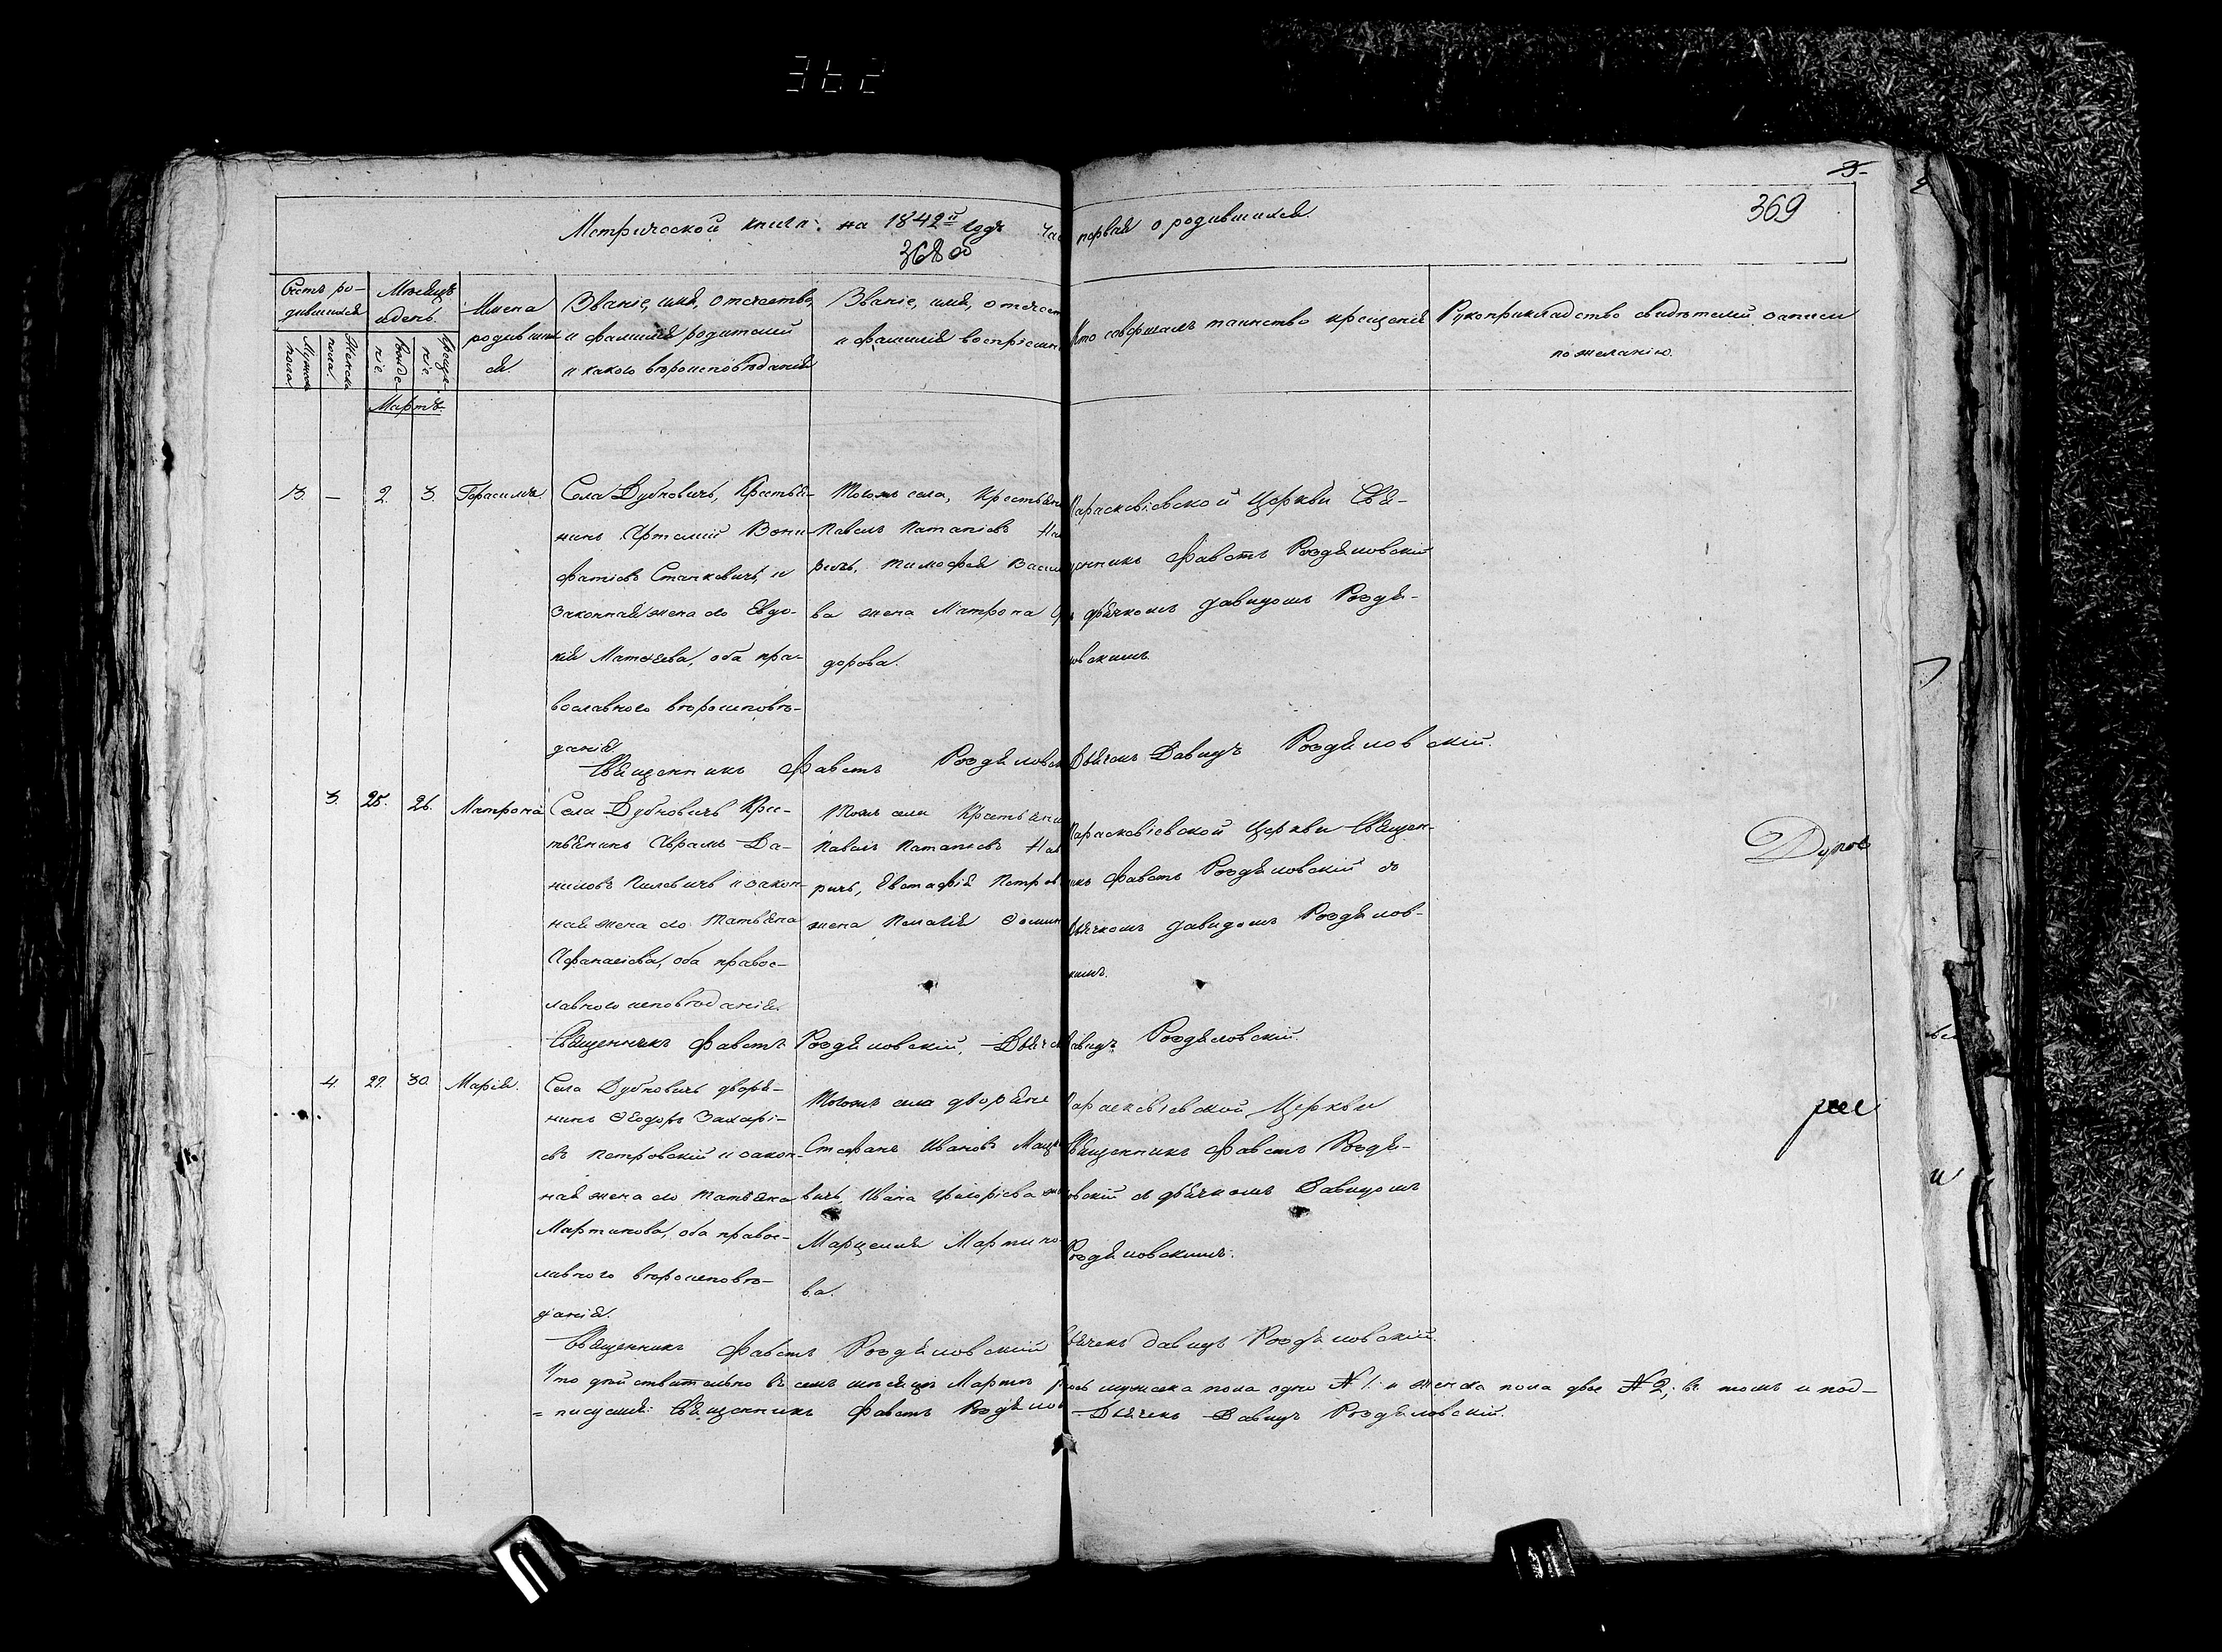 362
5
Метрической книги на 1842й годъ час первая о родившихся.
369
368 об
Счетъ ро-
дившихся
Мѣсяцъ
и день
Имена
родивших
ся
Званіе, имя, отчество,
и фамилія родителей
и какого вѣроисповѣданія
Званіе, имя, отечест
и фамилія воспріемн
Кто совершалъ таинство крещенія
Рукоприкладство свидѣтелей записи
по желанію.
Мужеска
пола
Женска
пола.
Рожде-
ніе
Креще-
ніе
Мартъ
3. — 2. 3 Герасимъ.
Села Дубновичъ, Крестья-
нинъ Артемій Вони-
фатіевъ Станкевичъ, и
законная жена его Евдо-
кія Матѳеева, оба пра-
вославного вѣроисповѣ-
данія.
Тогожъ села, Крестьяни
Павелъ Патапіевъ
Тимофея Васил
ва жена Матрона
дорова.
Параскевіевской Церкви Свя-
щенникъ Фавстъ Роздяловскій
дьячкомъ Давидомъ Роздя-
ловскимъ.
Священникъ Фавстъ Роздяловск Дьячекъ Давидъ Роздяловскій.
3. 25. 26. Матрона
Села Дубновичъ Крес-
тьянинъ Аврамъ Да-
ниловъ и закон-
ная жена его Татьяна
Афанасіева, оба правос-
лавного исповѣданія.
Тогожъ села Крестьяни
Павелъ Патапіевъ
ричъ, Евстафія Петров
жена Пелагія Ѳомин
Параскевіевской Церкви Священ-
никъ Фавстъ Роздяловскій съ
Дьячкомъ Давидомъ Роздялов-
скимъ.
Священникъ Фавстъ Роздяловскій, Дьячек Давидъ Роздяловскій.
4. 29. 30. Марія.
Села Дубновичъ дворя-
нинъ Ѳеодоръ Захарі-
евъ Петровскій и закон-
ная жена его Татьяна
Мартинова, оба правос-
лавного вѣроисповѣ-
данія.
Тогожъ села дворяне
Стефанъ Ивановъ
вичъ, Ивана Григоріева
Марцелія Мартино-
ва.
Параскевіевской Церкви
Священникъ Фавстъ Роздя-
ловскій съ дьячкомъ Давидомъ
Роздяловскимъ.
Священникъ Фавстъ Роздяловскій Дьячекъ Давидъ Роздяловскій.
Что дѣйствительно въ семъ мѣсяцѣ Мартѣ мужеска пола одно №1. и женска пола двое №2; въ томъ и под-
=писуемся: Священникъ Фавстъ Роздялов - Дьячекъ Давидъ Роздяловскій.